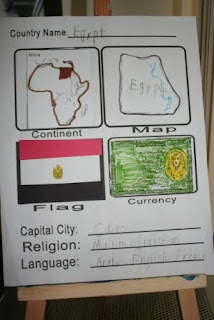 Country Name: Egypt
Africa
Egypt
Continent
Map
Flag
Currency
Capital City: Cairo
Religion:
Language: Arabic English French